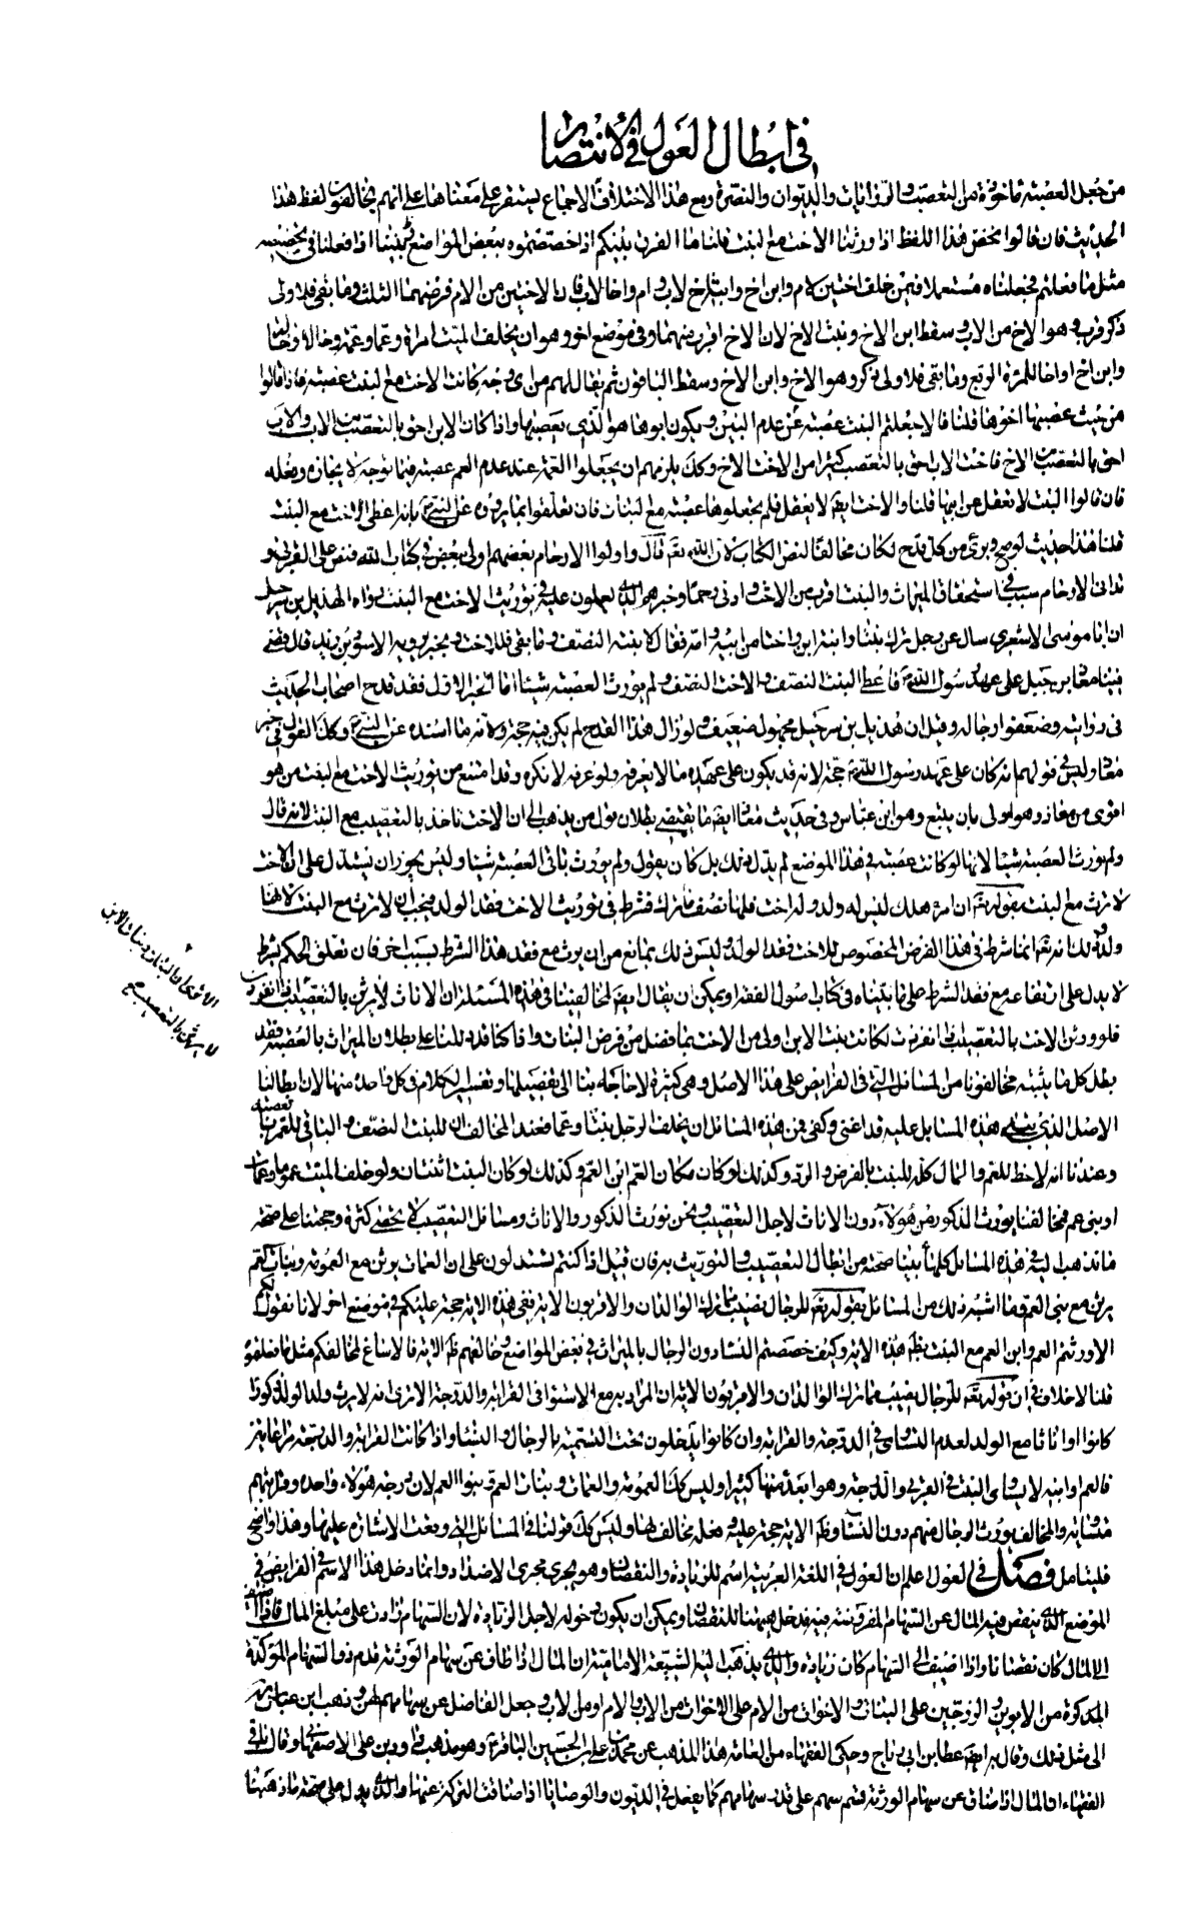 في ابطال العول في الانتصار
من جعل العصبة مأخوذة من التعصب والروايات والديوان والنصرة ومع هذا الاختلاف لا اجماع يستقر على معناها على انهم يخالفون لفظ هذا
الحديث فان قالوا نخص هذا اللفظ اذا ورثنا الاخت مع البنت قلنا ما الفرق بينكم اذا خصصتموه ببعض المواضع وبيننا اذا فعلنا في تخصيصه
مثل ما فعلتم فجعلناه مستعملا فيمن خلف اختين لام وابن اخ وابنة اخ لاب وام واخا لاب فان الاختين من الام فرضهما الثلث وما بقي فلاولى
ذكر قرب وهو الاخ من الاب وسقط ابن الاخ وبنت الاخ لان الاخ اقرب منهما وفي موضع اخر وهو ان يخلف الميت امراة وعما وعمة وخالا وخالة
وابن اخ او اخا للمرأة الربع وما بقي فلاولى ذكر وهو الاخ وابن الاخ وسقط الباقون ثم يقال لهم من اي وجه كانت الاخت مع البنت عصبة فاذا قالوا
من حيث عصبها اخوها قلنا فالا جعلتم البنت عصبة عند عدم البنين ويكون ابوها هو الذي يعصبها واذا كان الابن احق بالتعصيب من الاب والاب
احق بالتعصيب من الاخ فاخت الابن احق بالتعصيب كثيرا من اخت الاخ وكذلك يلزمهم ان يجعلوا العمة عند عدم العم عصبة فيما توجه لانجازه وفعله
فان قالوا البنت لا تعقل عن ابيها قلنا والاخت ايضا لا تعقل فلم يجعلوها عصبة مع البنات فان تعلقوا بما يروونه عن النبي بانه اعطى الاخت مع البنت
قلنا هذا حديث لو صح وبرئ من كل قدح لكان مخالفا لنص الكتاب لان الله تعالى قال واولوا الارحام بعضهم اولى ببعض في كتاب الله فنص على القربى و
تداني الارحام سبب في استحقاق الميراث والبنت اقرب من الاخت وادنى رحما وخبرهم الذي يعولون عليه في توريث الاخت مع البنت رواه الهذيل بن شرحبيل
ان ابا موسى الاشعري سال عن رجل ترك بنتا وابنة ابن واختا من ابيه وامه فقال لابنته النصف وما بقي فللاخت وبخبر يرويه الاسود بن يزيد قال قضى
فينا معاذ بن جبل على عهد رسول الله فاعطى البنت النصف والاخت النصف ولم يورث العصبة شيئا اما الخبر الاول فقد قدح اصحاب الحديث
في روايته وضعفوا رجاله وقيل ان هذيل بن شرحبيل مجهول ضعيف ولو زال هذا القدح لم يكن فيه حجة لانه ما اسنده عن النبي وكذلك القول في خبر
معاذ وليس في قولهم انه كان على عهد رسول الله حجة لانه قد يكون على عهده ما لا يعرفه ولو عرفه لانكره وقد امتنع من توريث الاخت مع البنت من هو
اقوى من معاذ وهو اولى بان يتبع وهو ابن عباس وفي حديث معاذ ايضا ما يقتضي بطلان قول من يذهب الى ان الاخت تاخذ بالتعصيب مع البنت لانه قال
ولم يورث العصبة شيئا لانها لو كانت عصبة في هذا الموضع لم يقل ذلك بل كان يقول ولم يورث باقي العصبة شيئا وليس يجوز ان يستدل على ان الاخت
لا ترث مع البنت بقوله تعالى ان امرؤ هلك ليس له ولد وله اخت فلها نصف ما ترك فشرط في توريث الاخت فقد الولد فيجب ان لا ترث مع البنت لانها
ولد وذلك انه تعالى انما شرط في هذا الفرض المخصوص للاخت فقد الولد وليس ذلك بمانع من ان يرث مع فقد هذا الشرط بسبب اخر فان تعلق الحكم بشرط
لا يدل على ارتفاعه مع فقد الشرط على ما بيناه في كتاب اصول الفقه ويمكن ان يقال ايضا لمخالفينا في هذه المسئلة ان الاناث لا يرثن بالتعصيب اذا انفردن
فلو ورثن الاخت بالتعصيب اذا انفردت لكانت بنت الابن اولى من الاخت بما فضل من فرض البنات واذا كنا قد دللنا على بطلان الميراث بالعصبة فقد
بطل كل ما يثبته مخالفونا من المسائل التي في الفرايض على هذا الاصل وهي كثيرة لا حاجة بنا الى تفصيلها وتفسير الكلام في كل واحدة منها لان ابطالنا
الاصل الذي يبتنى هذه المسايل عليه قد اغنى وكفى فمن هذه المسائل ان يخلف الرجل بنتا وعما فعند المخالف ان للبنت النصف والباقي للعم بالعصبة
وعندنا انه لا حظ للعم والمال كله للبنت بالفرض والرد وكذلك لو كان مكان العم ابن العم وكذلك لو كان البنت اثنتان ولو خلف الميت عمومة وعمات
او بني عم فمخالفنا يورث الذكور من هولاء دون الاناث لاجل التعصيب ونحن نورث الذكور والاناث ومسائل التعصيب لا تحصى كثرة وحجتنا على صحة
ما نذهب اليه في هذه المسائل كلها ما بينا صحته من ابطال التعصيب والتوريث به فان قيل اذا كنتم تستدلون على ان العمات يرثن مع العمومة وبنات العم
يرثن مع بني العم وما اشبه ذلك من المسائل بقوله تعالى للرجال نصيب مما ترك الوالدان والاقربون الاية ففي هذه الاية حجة عليكم في موضع اخر لانا نقول لكم
الا ورثتم العم وابن العم مع البنت بظاهر هذه الاية وكيف خصصتم النساء دون الرجال بالميراث في بعض المواضع وخالفتم ظاهر الاية فالا ساغ لمخالفكم مثل ما فعلتموه
قلنا لا خلاف في ان قوله تعالى للرجال نصيب مما ترك الوالدان والاقربون الاية ان المراد به مع الاستوا في القرابة والدرجة الا ترى انه لا يرث ولد الولد ذكورا
كانوا او اناثا مع الولد لعدم التساوي في الدرجة والقرابة وان كانوا يدخلون تحت التسمية بالرجال والنساء واذا كانت القرابة والدرجة مراعاتين
فالعم وابنه لا يساوي البنت في القربى والدرجة وهو ابعد منها كثيرا وليس كذلك العمومة والعمات وبنات العم وبنوا العم لان درجة هولاء واحدة وقرابتهم
متساوية والمخالف يورث الرجال منهم دون النساء وظاهر الاية حجة عليه وفعله مخالف لها وليس كذلك قولنا في المسائل التي وقعت الاشارة عليها وهذا واضح
فليتامل فصل في العول اعلم ان العول في اللغة العربية اسم للزيادة والنقصان وهو يجري مجرى الاضداد وانما دخل هذا الاسم في الفرايض في
الموضع الذي ينقص فيه المال عن السهام المفروضة فيه فدخل هيهنا للنقصان ويمكن ان يكون دخوله لاجل الزيادة لان السهام زادت على مبلغ المال فاذا اضيف
الى المال كان نقصانا واذا اضيف الى السهام كان زيادة والذي يذهب اليه الشيعة الامامية ان المال اذا ضاق عن سهام الورثة قدم ذوا السهام المؤكدة
المذكورة من الابوين والزوجين على البنات والاخوات من الام على الاخوات من الاب والام او من الاب وجعل الفاضل عن سهامهم لهن وذهب ابن عباس
الى مثل ذلك وقال به ايضا عطا بن ابي رباح وحكى الفقهاء من العامة هذا المذهب عن محمد بن علي بن الحسين الباقر وهو مذهب داود بن علي الاصفهاني وقال باقي
الفقهاء ان المال اذا ضاق عن سهام الورثة قسم بينهم على قدر سهامهم كما يفعل في الديون والوصايا اذا ضاقت التركة عنها والذي يدل على صحة ما ذهبنا
الا ترى ان البنات وبنات الابن
لا يرثن بالتعصيب مع